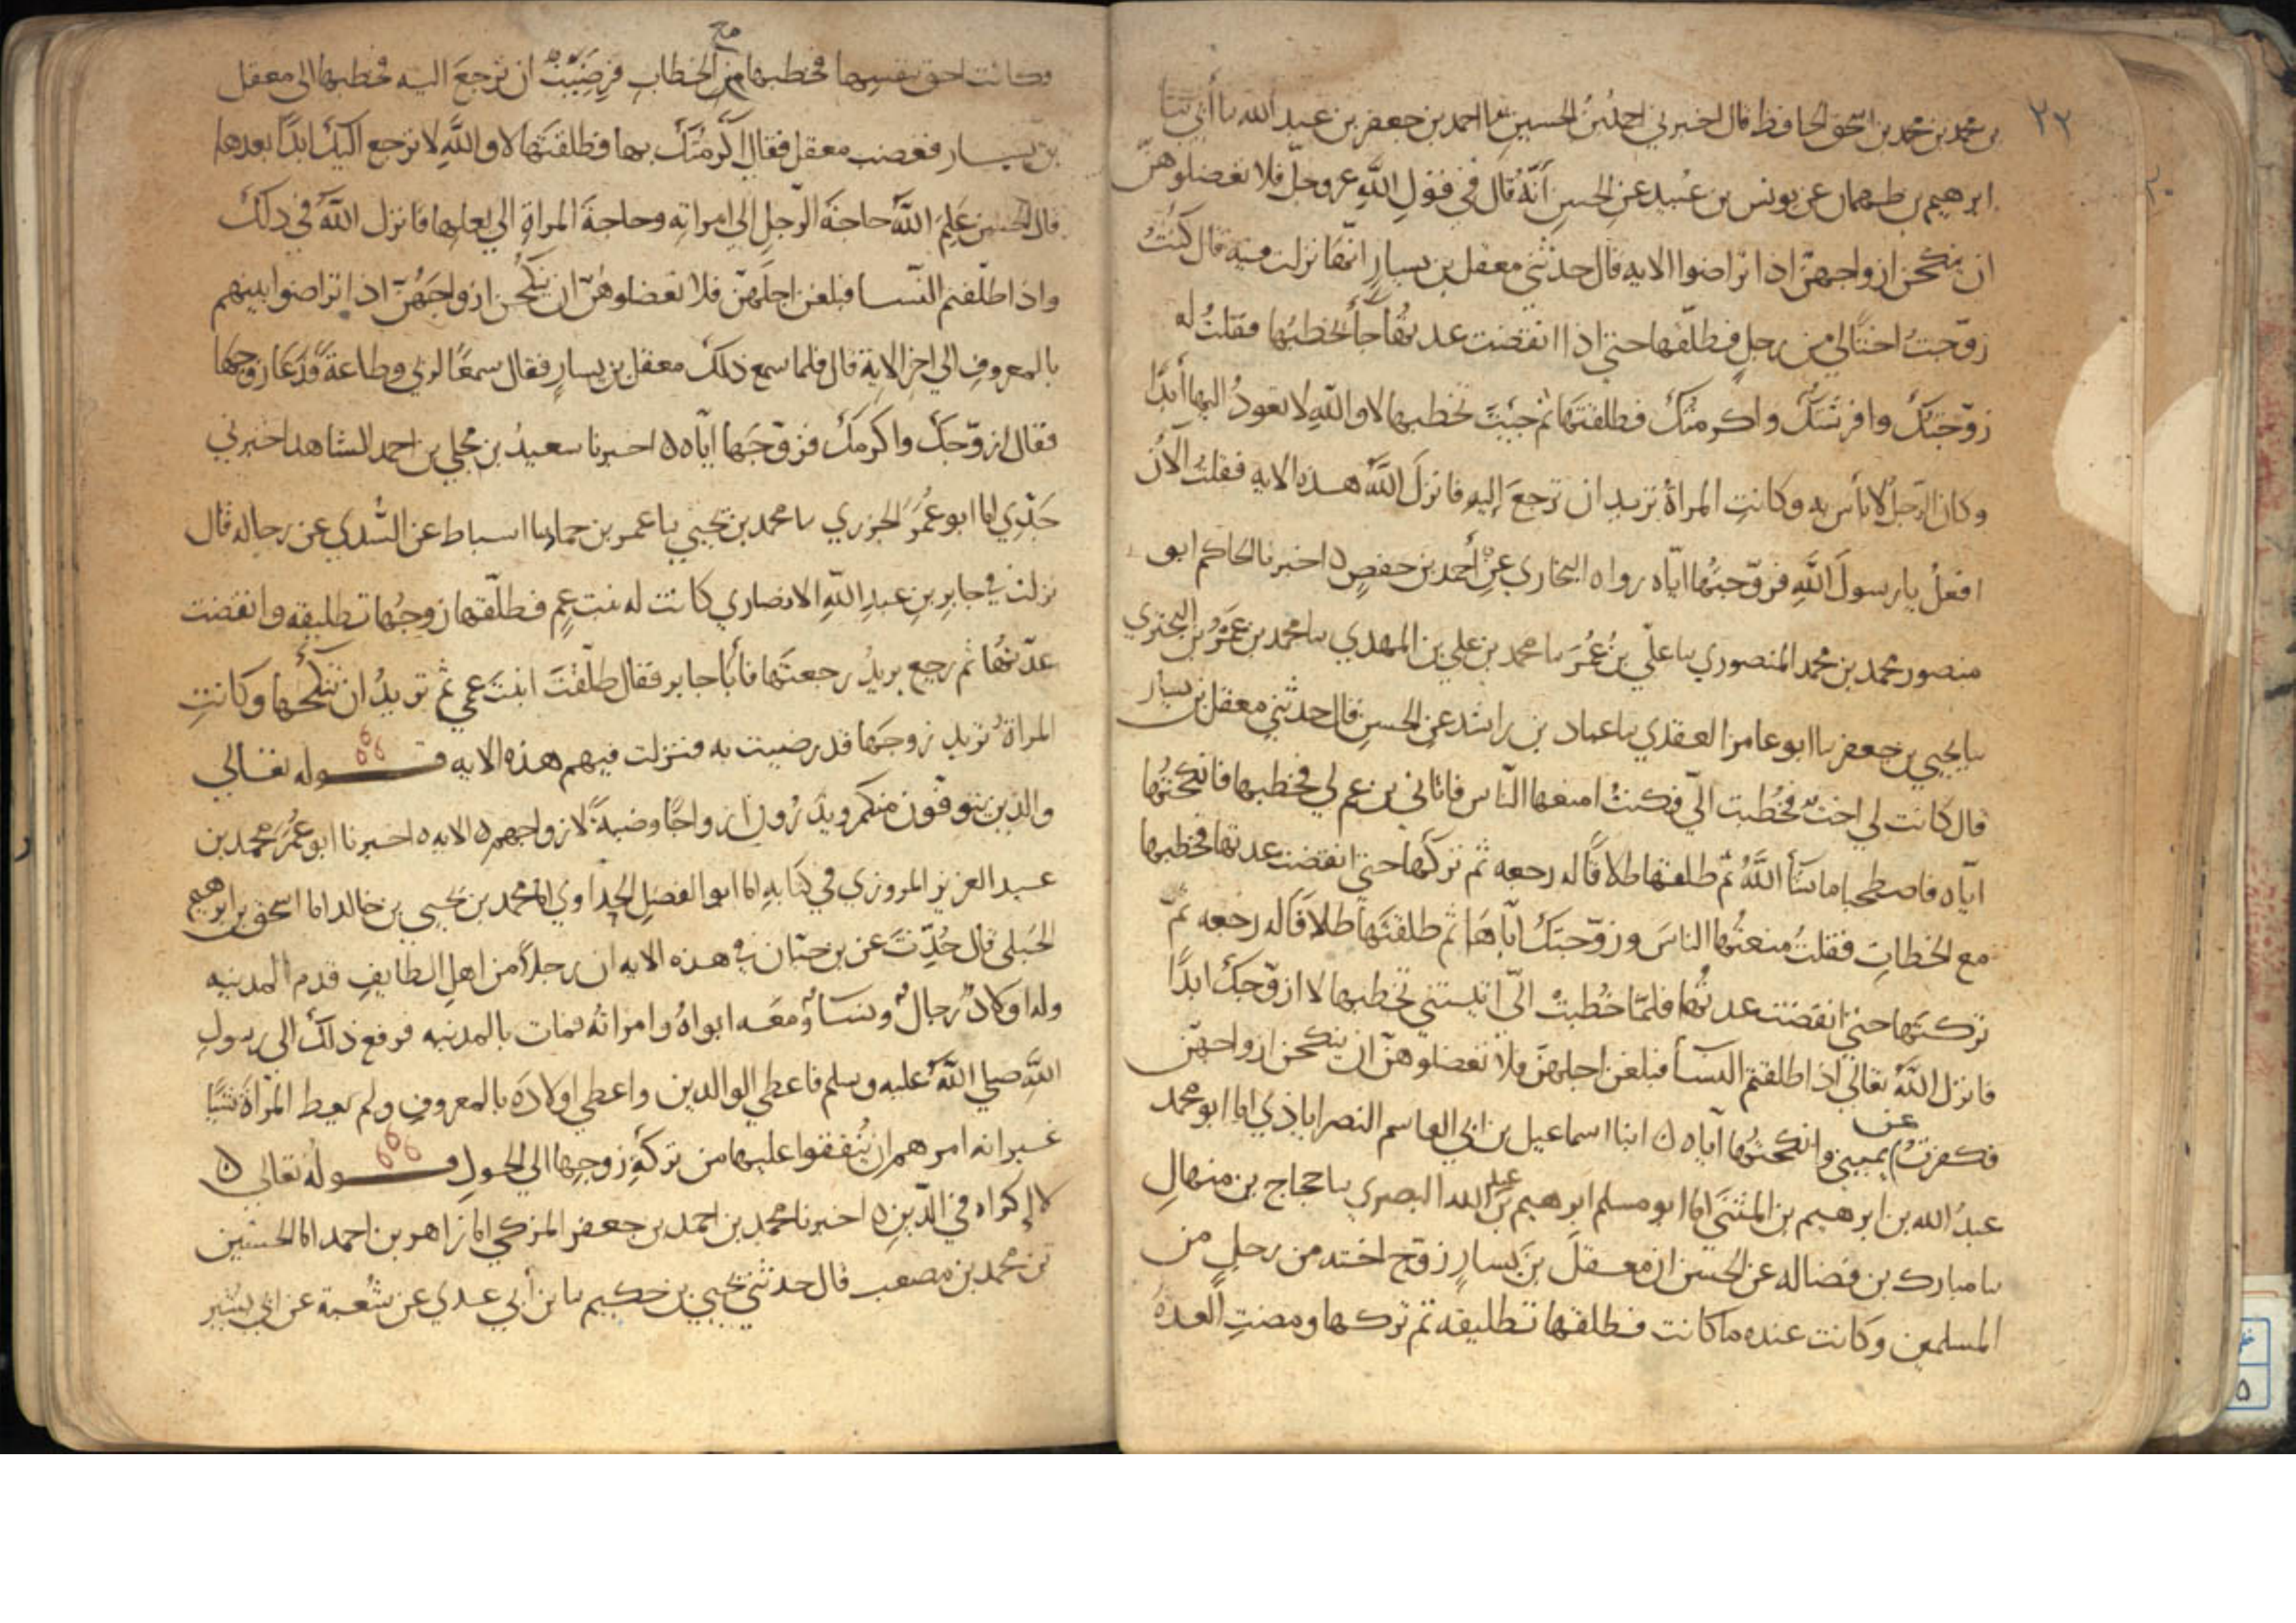 ٢٣
بن محمد بن محمد بن اسحق الحافظ قال اخبرني احمد بن الحسين ثنا احمد بن جعفر بن عبد الله ثنا أبي ثنا
ابرهيم بن طهمان عن يونس بن عبيد عن الحسن أنّه قال في قول الله عز وجل فلا تعضلوهنّ
ان ينكحن ازواجهنّ اذا تراضوا الايه قال حدثني معقل بن يسارٍ انّها نزلت فيه قال كنتُ
زوّجتُ اختًا لي من رجلٍ فطلّقها حتى اذا انقضت عدتُها جأ يخطبُها فقلتُ له
زوّجتك وافرشتك واكرمتك فطلقتها ثم جيتَ تخطبها لا والله لا تعودُ اليها أبدًا
وكان الرّجلُ لا بأس به وكانتِ المراةُ تريد ان ترجعَ إليه فانزلَ اللهُ هذه الايه فقلتُ الآنَ
افعلُ يا رسولَ اللهِ فزوّجتُها ايّاه رواه البخاري عن أحمد بن حفصٍ ه اخبرنا الحاكم ابو
منصور محمد بن محمد المنصوري ثنا علي بن عُمر ثنا محمد بن علي بن المهدي ثنا محمد بن عمرو بن البختري
ثنا يحيي بن جعفر ثنا ابو عامر العقدي ثنا عباد بن راشد عن الحسن قال حدثني معقل بن يسار
قال كانت لي اختٌ فخُطبت اليّ فكنتُ امنعها النّاس فاتاني بن عم لي فخطبها فانكحتُها
ايّاه فاصطحبا ما شأ اللهُ ثمّ طلقها طلاقًا له رجعه ثم تركها حتى انقضت عدتها فخطبها
مع الخطابِ فقلتُ منعتُها الناسَ وزوّجتك ايّاها ثم طلقتَها طلاقا له رجعه ثمّ
تركتَها حتى انقضت عدتُها فلمّا خُطبتْ اليّ اتيتني تخطبها لا ازوّجك ابدًا
فانزل اللهُ تعالي اذا طلقتم النسأ فبلغن اجلهنّ فلا تعضلوهنّ ان ينكحن ازواجهنّ
فكفرتُ عن يميني وانكحتُها ايّاه ه انبا اسماعيل بن ابي القاسم النصراباذي انا ابو محمد
عبدُ الله بن ابرهيم بن المثنى انا ابو مسلم ابرهيم بن عبد الله البصري ثنا حجاج بن منهالِ
ثنا مبارك بن فضاله عن الحسن ان معقلَ بن يسارٍ زوّج اخته من رجلٍ من
المسلمين وكانت عنده ما كانت فطلقها تطليقه ثم تركها ومضتِ العدةُ
فكانت احق بنفسِها فخطبها مع الخطاب فرضيتْ ان ترجعَ اليه فخطبها الى معقل
بن يسار فغضب معقل فقال اكرمتك بها فطلقتَها لا واللهِ لا ترجع اليك ابدًا بعدها
قال الحسن عَلِمَ اللهُ حاجةَ الرّجلِ إلى امراته وحاجةَ المراةِ الي بعلها فانزل اللهُ في ذلك
واذا طلّقتم النّسا فبلغن اجلهنّ فلا تعضلوهنّ ان ينكحن ازواجَهُنّ اذا تراضوا بينهم
بالمعروفِ الي اخر الاية قال فلما سمع ذلك معقل بن يسارٍ فقال سمعًا لربي وطاعةً فدعا زوجها
فقال ازوّجك واكرمك فزوّجَها ايّاه ه اخبرنا سعيدُ بن محمد بن احمد الشاهد اخبرني
جَدّي انا ابو عُمَر الجزري ثنا محمد بن يحيي ثنا عمر بن حماد ثنا اسباط عن السّدي عن رجاله قال
نزلت في جابرِ بن عبدِ اللهِ الانصاري كانت له بنت عمٍ فطلّقها زوجُها تطليقه وانقضت
عدّتُها ثم رجع يريدُ رجعتَها فأبا جابر فقال طلّقتَ ابنتَ عمي ثم تريدُ ان تنكحُها وكانتِ
المراةُ تريد زوجَها قد رضيت به فنزلت فيهم هذه الايه قوله تعالي
والذين يتوفّون منكم ويذرُون ازواجًا وصيةً لازواجهم ه الايه ه اخبرنا ابو عُمَر محمد بن
عبد العزيز المروزي في كتابه انا ابو الفضل الحدادي انا محمد بن يحيي بن خالد انا اسحق بن ابرهيم
الحنبلي قال حُدّثتُ عن بن حيّان في هذه الايه ان رجلًا من اهلِ الطايفِ قدم المدينه
وله اولادٌ رجالٌ ونسأٌ ومعه ابواهُ وامراتُه فمات بالمدينه فرفع ذلك الى رسولِ
اللهِ صلي اللهُ عليه وسلم فاعطي الوالدين واعطي اولادَه بالمعروفِ ولم يعط المرأةَ شيًا
غير انه امرهم ان يُنفقوا عليها من تركةِ زوجِها الي الحولِ قولُه تعالى ه
لا إكراه في الدّين ه اخبرنا محمد بن احمد بن جعفر المزكي انا زاهر بن احمد انا الحسين
بن محمد بن مصعب قال حدثني يحيي بن حكيم ثنا بن أبي عدي عن شُعبة عن ابي بشر